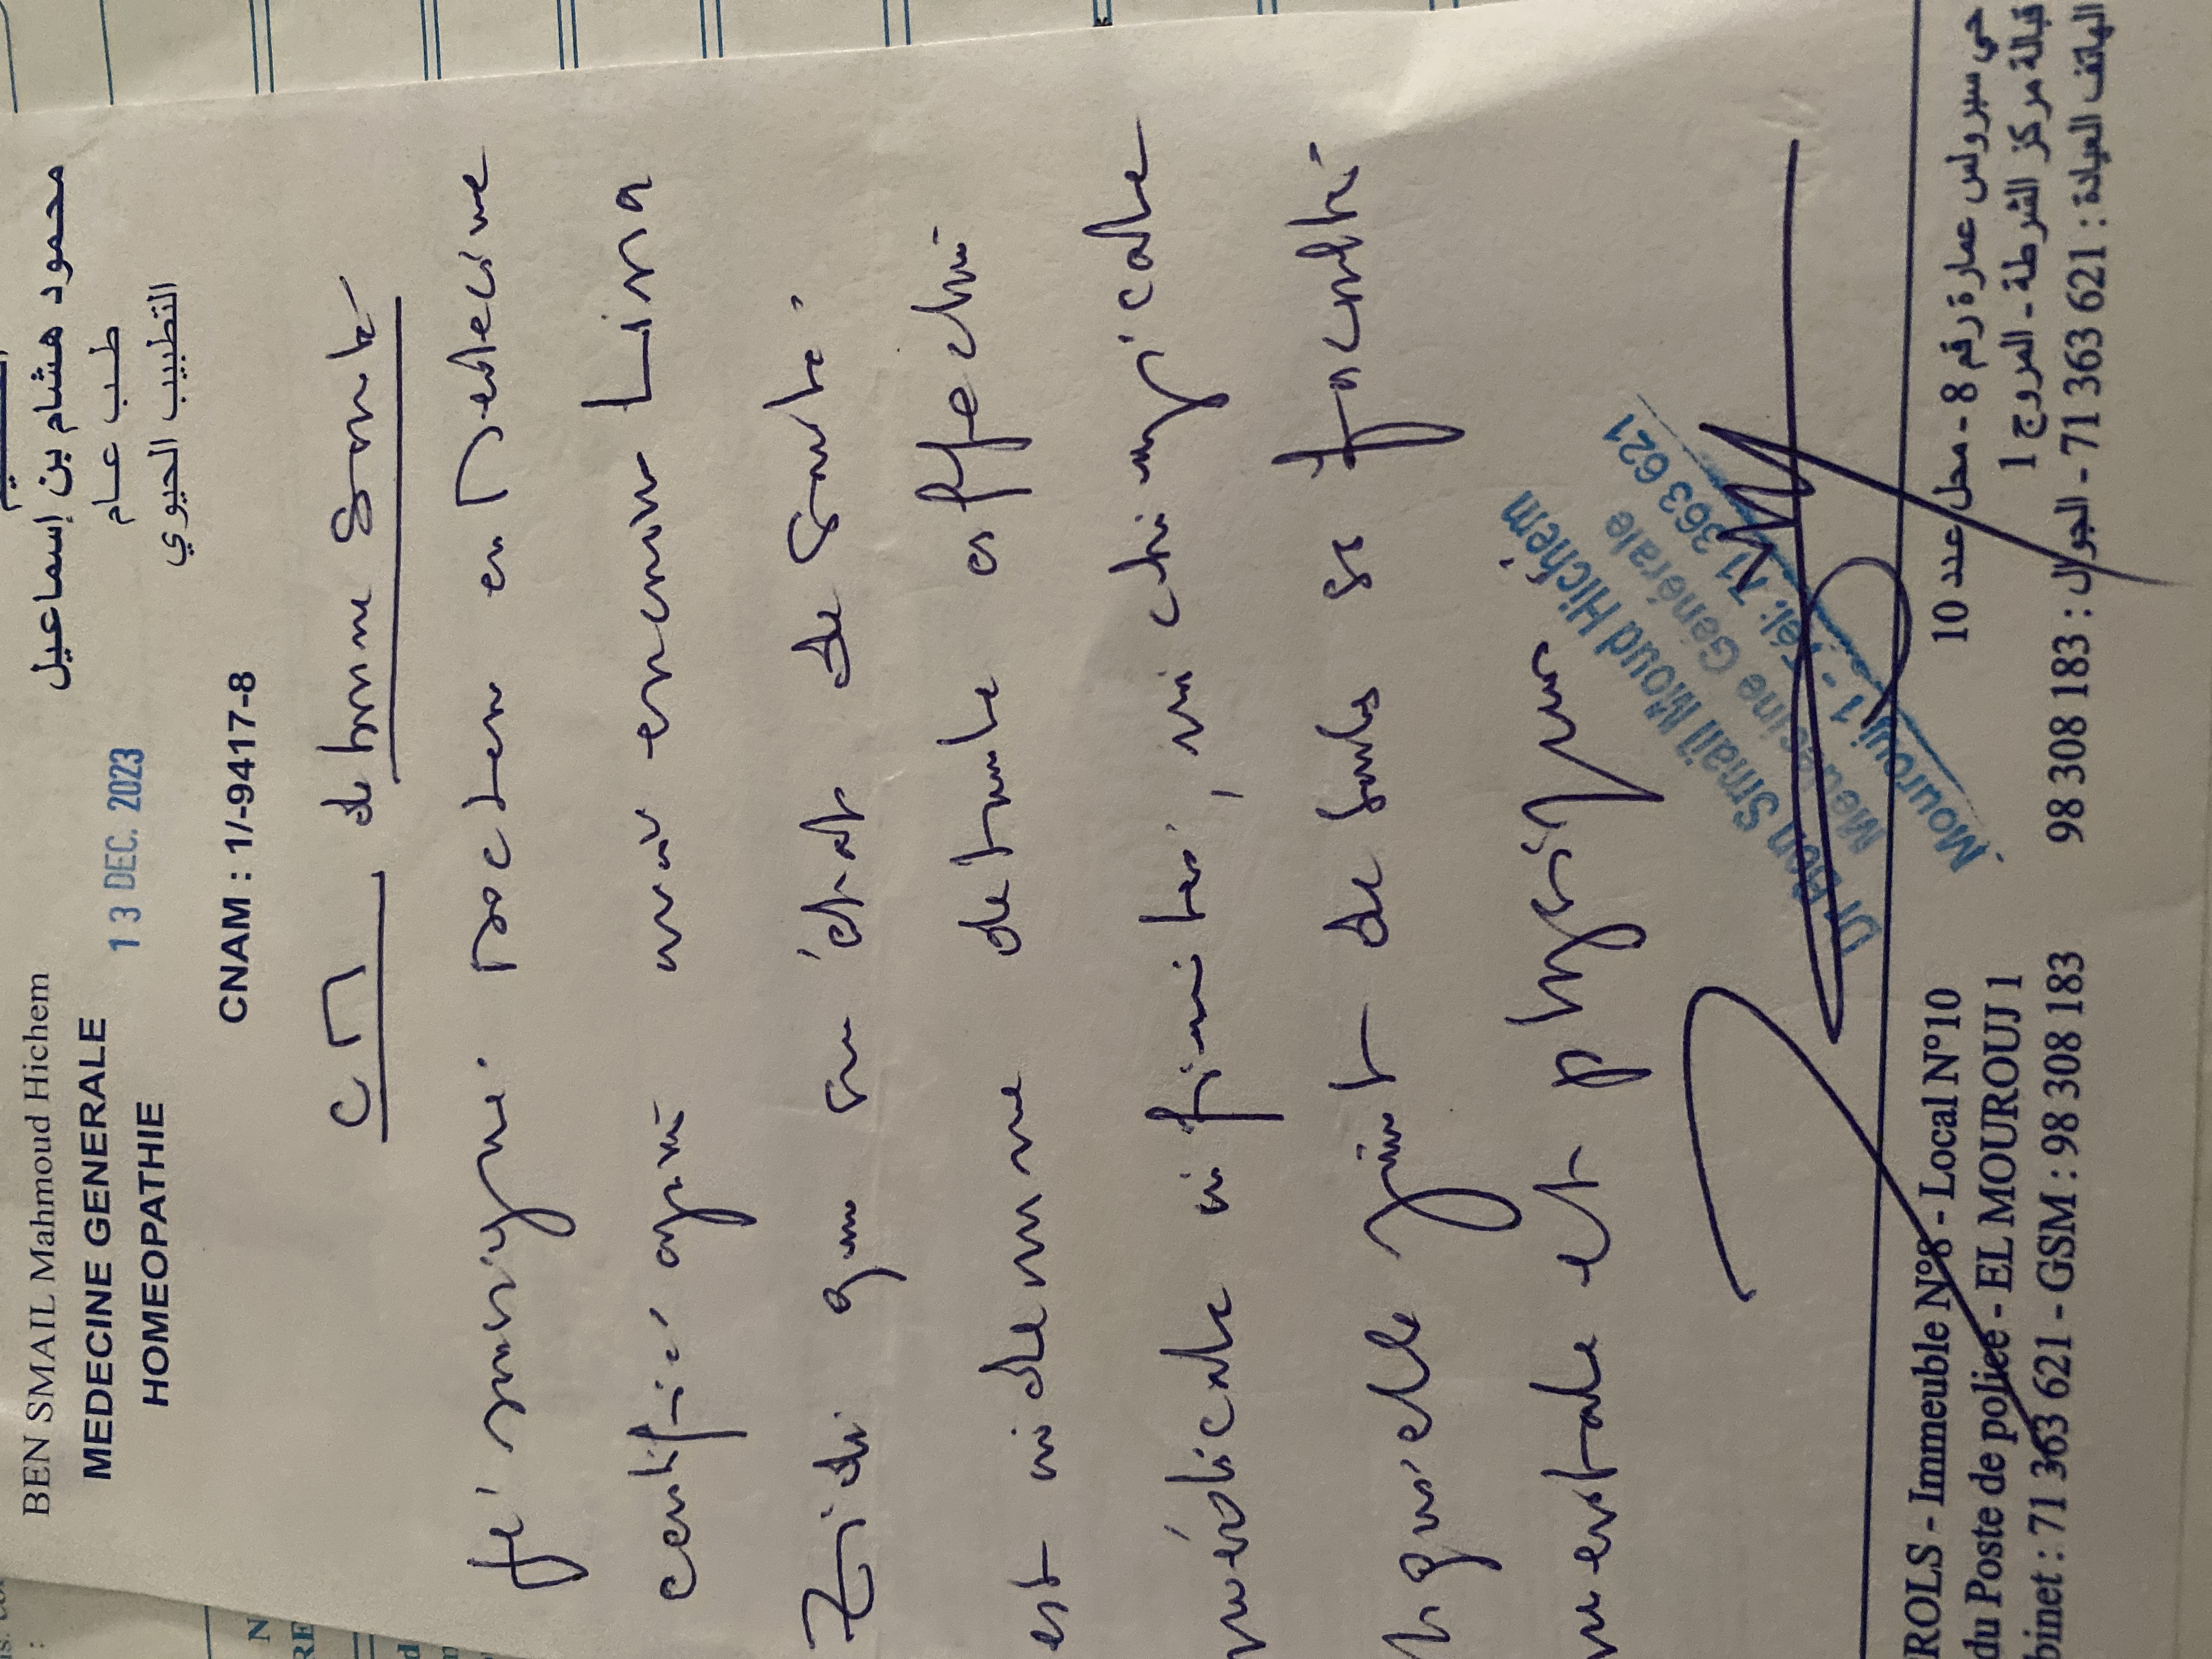 BEN SMAIL Mahmoud Hichem
محمود هشام بن إسماعيل
MEDECINE GENERALE
طب عام
HOMEOPATHIE
التطبيب الحيوي
13 DEC. 2023
CNAM : 1/-9417-8
CM de bonne Santé
Je soussigné. Docteur en Médecine
certifie, après avoir examiné Lina
Zidi que son état de Santé.
est indemne de toute affection
médicale ni infirmité, ni chirurgicale
et qu'elle jouit de toutes ses facultés
mentale et physique
Dr Ben Smail Moud Hichem
Médecine Générale
Mourouj 1 - Tél: 71 363 621
ROLS - Immeuble N°8 - Local N°10
حي سيرولس عمارة رقم 8 - محل عدد 10
du Poste de police - EL MOUROUJ 1
قبالة مركز الشرطة - المروج 1
binet : 71 363 621 - GSM : 98 308 183
الهاتف العيادة : 71 363 621 - الجوال : 98 308 183